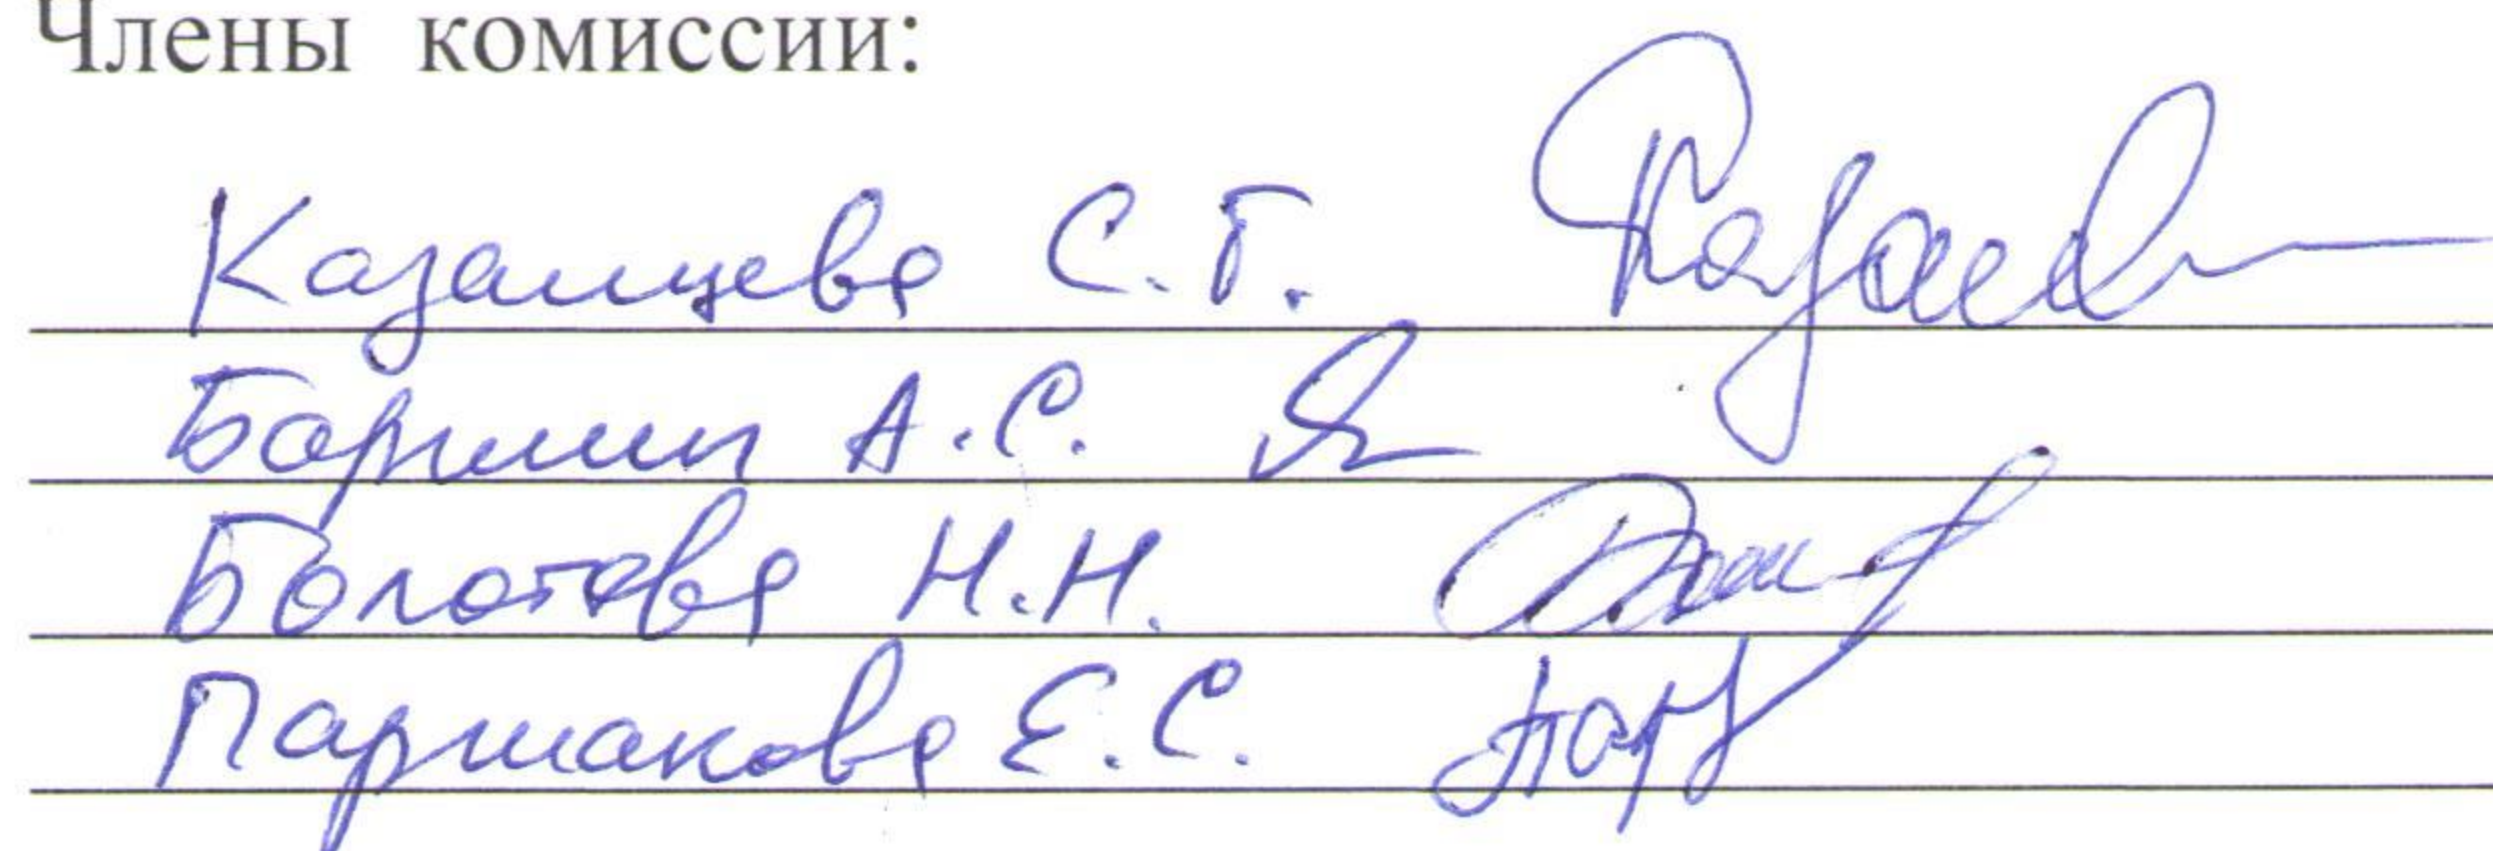 Члены комиссии:
Казанцева С.Г.
Баршин А.С.
Болотова Н.Н.
Паршакова Е.С.